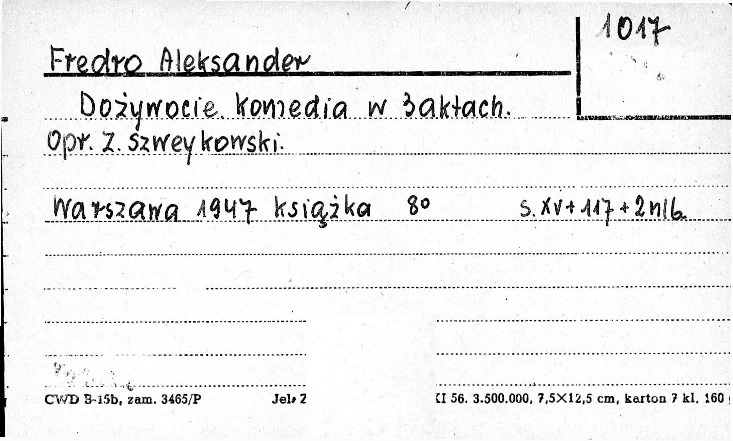 1017
Fredro Aleksander
Dożywocie. Komedia w 3 aktach.
Opr. Z. Szweykowski.
Warszawa 1947 książka 8° s. XV + 117 + 2 nlb.
CWD B-15b, zam. 3465/P XI 56. 3.500.000, 7,5×12,5 cm, karton 7 kl. 160